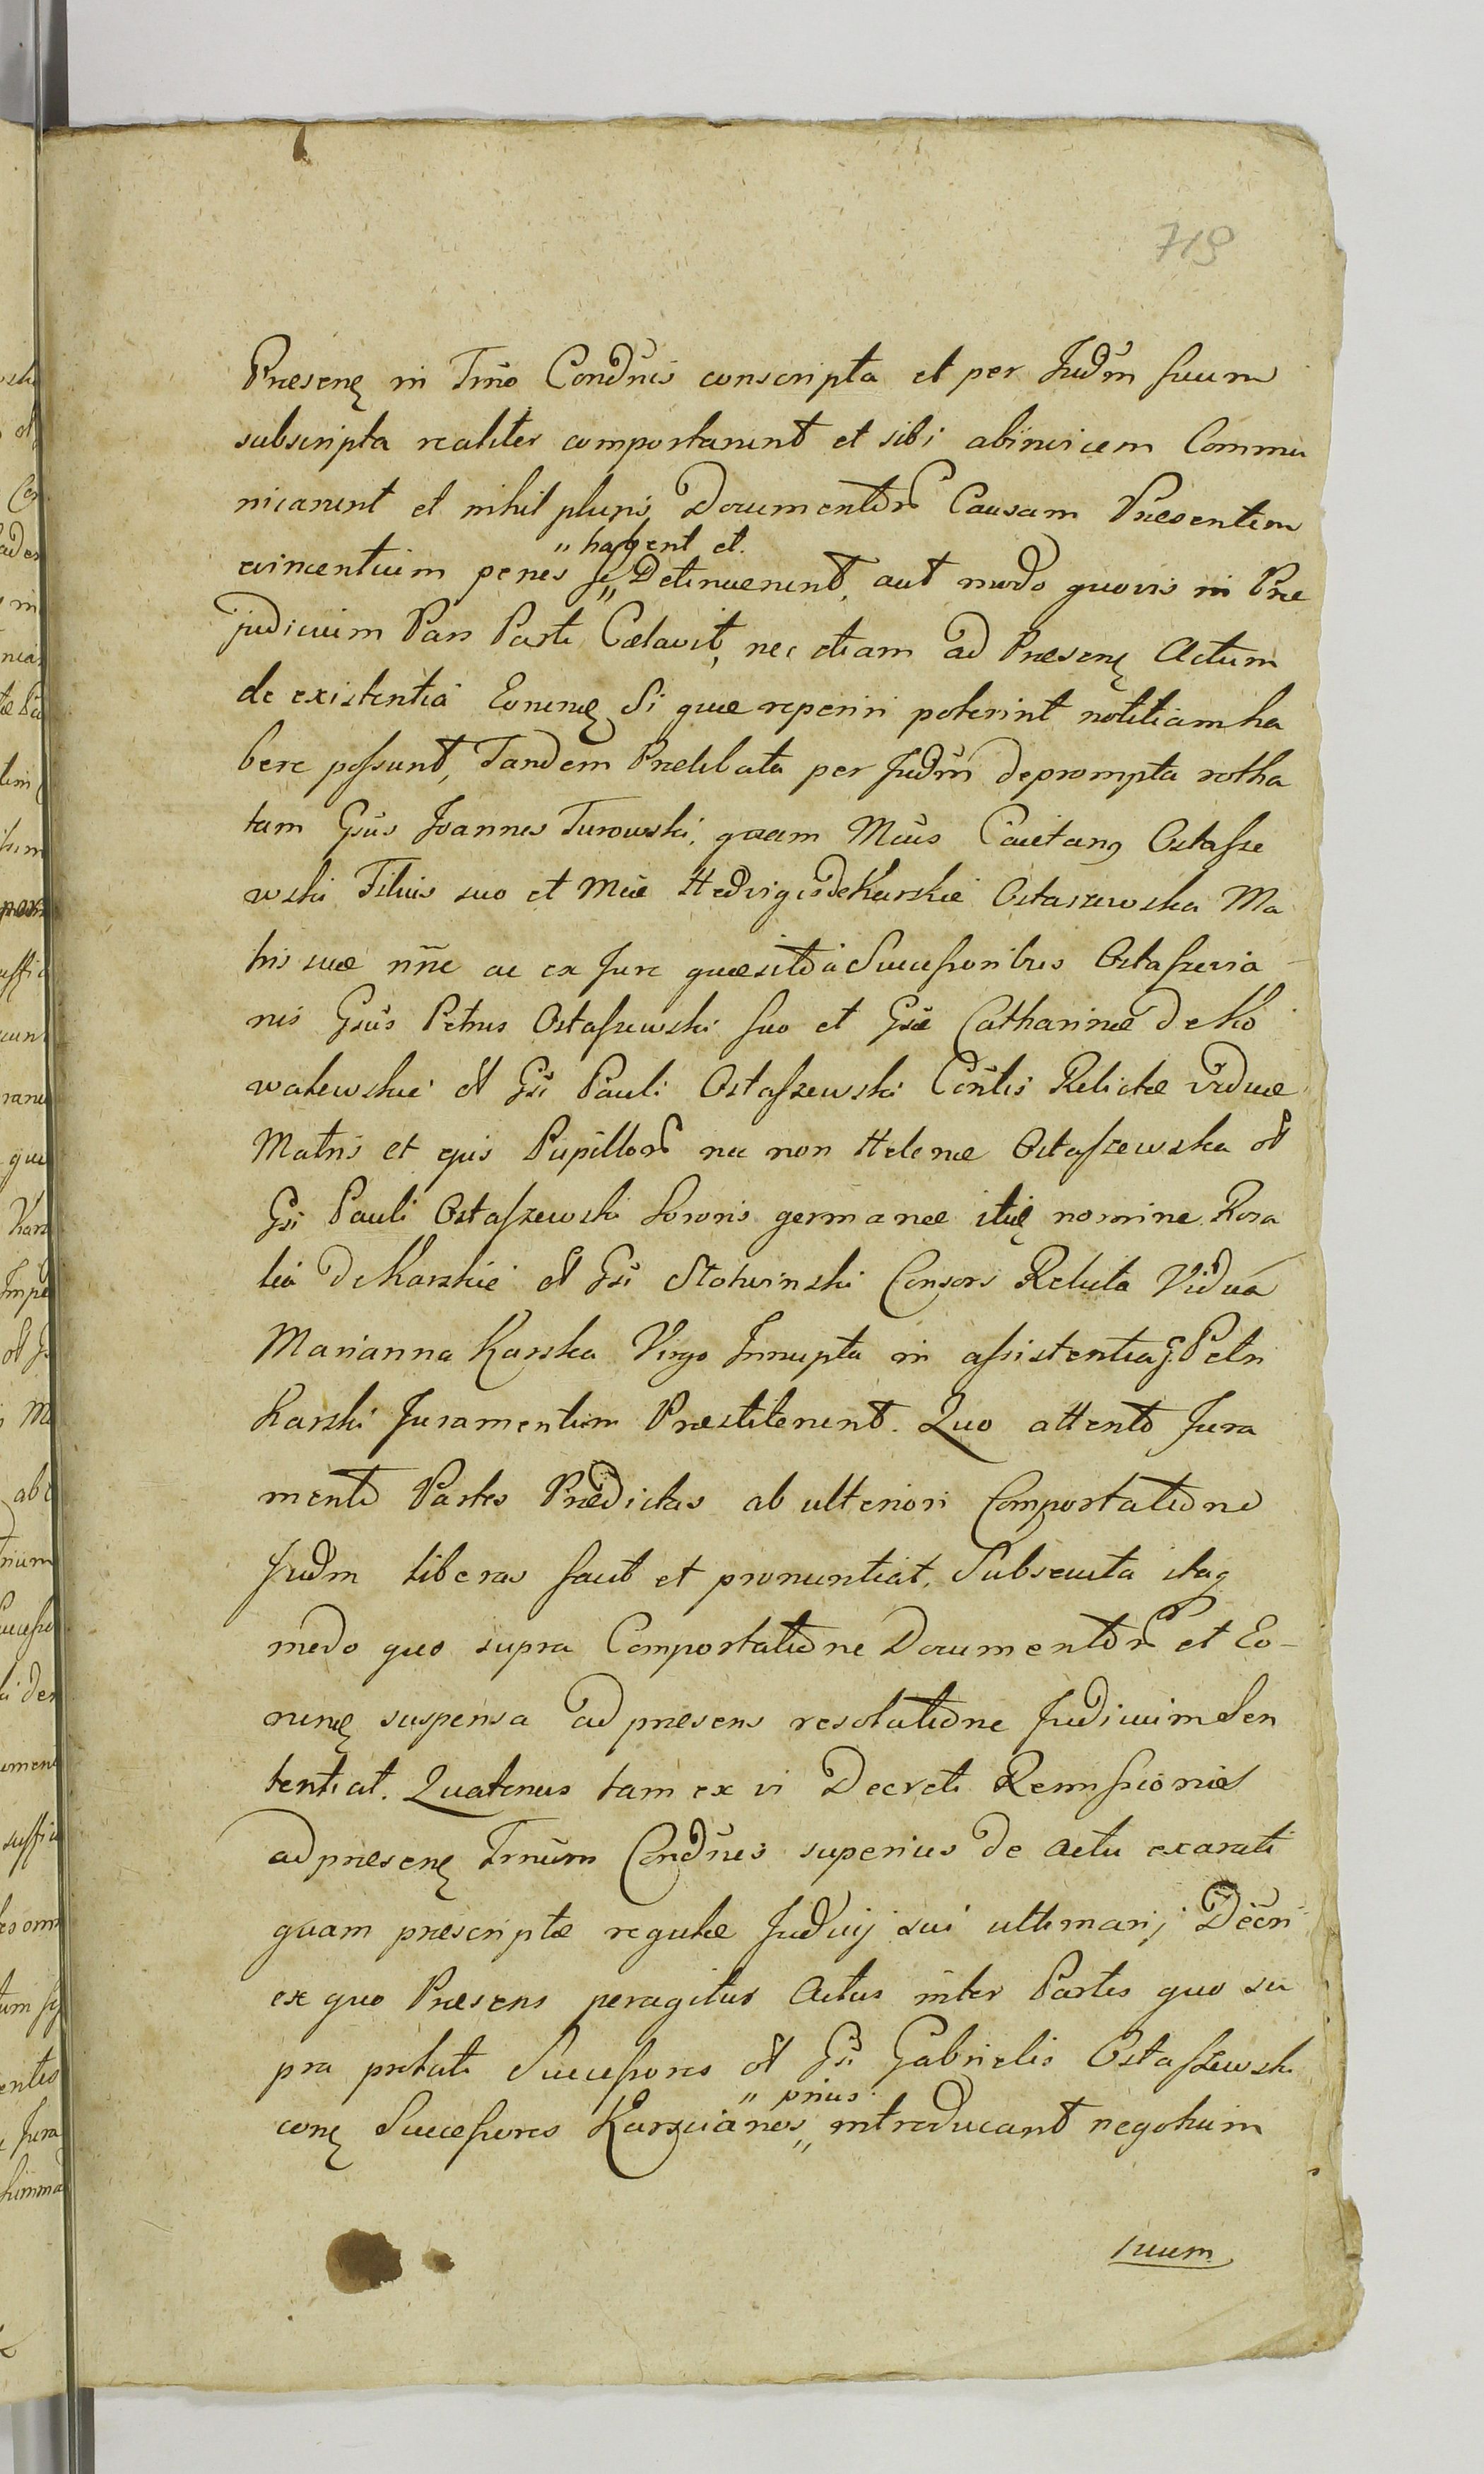 719
Præsenę in Trño Condñis conscripta et per Judm̃ suum
subscripta realiter comportarunt et sibi abinvicem Commu
nicarunt et nihil pluris Documentor̃ Causam Præsentem
" habent et.
evincentium penes se „ Detinuerunt, aut modo quovis in Præ
judicium Pars Parti Cælavit, nec etiam ad Præsenę Actum
de existentia Eorumę Si quæ reperiri poterint notitiam ha
bere possunt, Tandem Prælibata per Judm̃ deprompta rotha
tam Gsũs Joannes Turowski, quam Mcũs Caietanꝯ Ostasze
wski Filius suo et Mcæ Hedvigis de Karskie Ostaszewska Ma
tris suæ nñe ac ex Jure quæsito à Successoribus Ostaszevia
nis Gsũs Petrus Ostaszewski suo et Gsæ Catharinæ de Ko
walewskie ol Gsi Pauli Ostaszewski Cõntis Relictæ Viduæ
Matris et ejus Pupillor̃ nec non Helenæ Ostaszewska ol
Gsi Pauli Ostaszewski Sororis germanæ itię nomine. Rosa
lia de Karskie ol Gsi Stoiwinski Consors Relicta Vidua
Marianna Karska Virgo Innupta in assistentia G. Petri
Karski Juramentum Præstiterunt. Quo attento Jura
mento Partes Prædictas ab ulteriori Comportatione
Judm̃ liberas facit et pronuntiat. Subsecuta itaq
modo quo supra Comportatione Documentor̃ et Eo-
rumę suspensa ad præsens resolutione Judicium Sen
tentiat. Quatenus tam ex vi Decreti Remissionis
ad præsenę Trñum Condñis superius de actu exarati
quam præscriptæ regulæ Judicij sui ultimarij Decri
ex quo Præsens peragitur Actus inter Partes quo su
pra prætacti Successores ol Gsi Gabrielis Ostaszewski
" prius
conę Successores Karscianos „ introducant negotium
suum